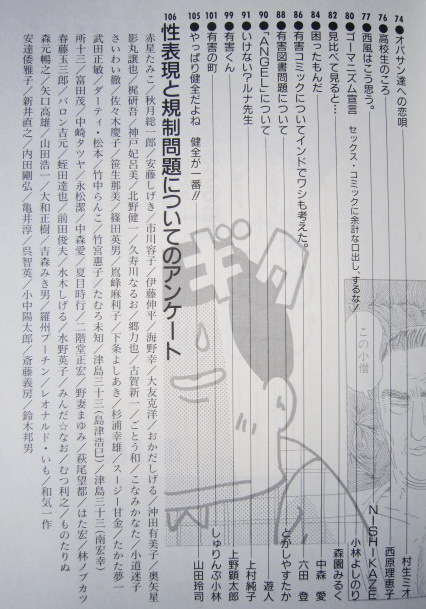 74●オバサン達への恋唄 村生ミオ
76●高校生のころ 西原理恵子
77●西風はこう思う。 NISHIKAZE
80●ゴーマニズム宣言 セックス・コミックに余計な口出し、するな! 小林よしのり
82●見比べて見ると… 森園みるく
84●困ったもんだ 中森 愛
86●有害コミックについてインドでワシも考えた。 六田 登
88●有害図書問題について とがしやすたか
90●「ANGEL」について 遊人
91●いけない?ルナ先生 上村純子
99●有害くん 上野顕太郎
101●有害の町 しゅりんぷ小林
105●やっぱり健全だよね 健全が一番!! 山田玲司
106 性表現と規制問題についてのアンケート
赤星たみこ/秋月総一郎/安藤しげき/市川容子/伊藤伸平/海野幸/大友克洋/おかだしげる/沖田有美子/奥矢星
影丸譲也/梶研吾/神戸妃呂美/北野健一/久寿川なるお/郷力也/古賀新一/ごとう和/こなみかなた/小道迷子
さいわい徹/佐々木慶子/笹生那実/篠田英男/嶌峰麻利子/下条よしあき/杉浦幸雄/スージー甘金/たかた夢一
武田正敏/ダーティ・松本/竹中らんこ/竹宮惠子/たむろ未知/津島三十三(島津浩巳)/津島三十三(南宏幸)
所十三/富田茂/中崎タツヤ/永松潔/中森愛/夏目時行/二階堂正宏/野妻まゆみ/萩尾望都/はた宏/林ノブカツ
春藤玉三郎/バロン吉元/蛭田達也/前田俊夫/水木しげる/水野英子/みんだ☆なお/むつ利之/ものたりぬ
森元暢之/矢口高雄/山田浩一/大和正樹/吉森みき男/羅州プーチン/レオナルド・いも/和気一作
安達倭雅子/新井直之/内田剛弘/亀井淳/呉智英/小中陽太郎/斎藤義房/鈴木邦男
ギク
この小僧